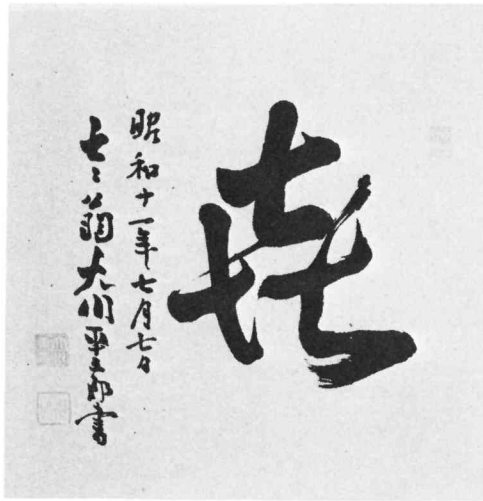 㐂
昭和十一年七月七日
七〻翁大川平三郎書